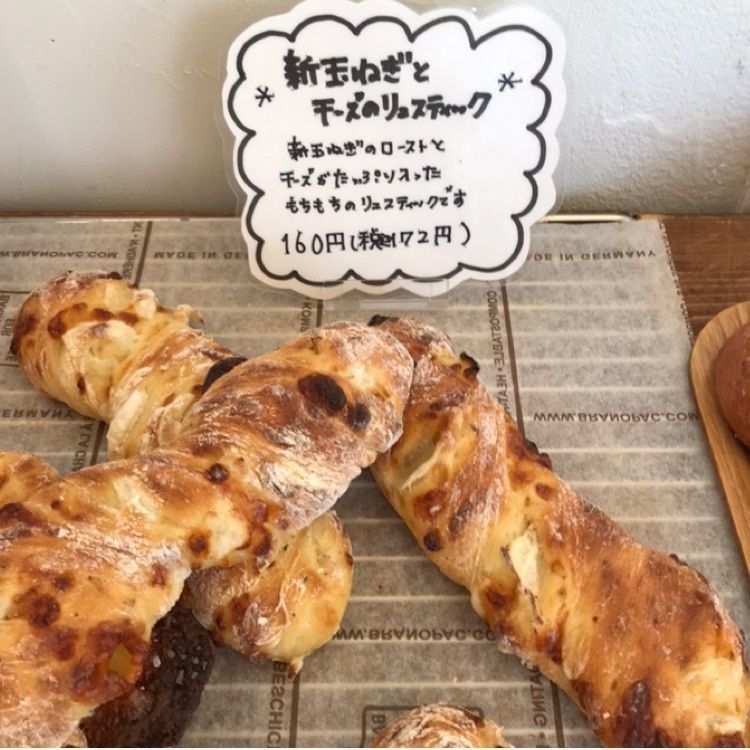 新玉ねぎと
チーズのリュスティック
新玉ねぎのローストと
チーズがたっぷり入った
もちもちのリュスティックです
160円(税込172円)
MADE IN GERMANY
MADE IN GERMANY
WWW.BRANOPAC.COM
WWW.BRANOPAC.COM
WWW.BRANOPAC.COM